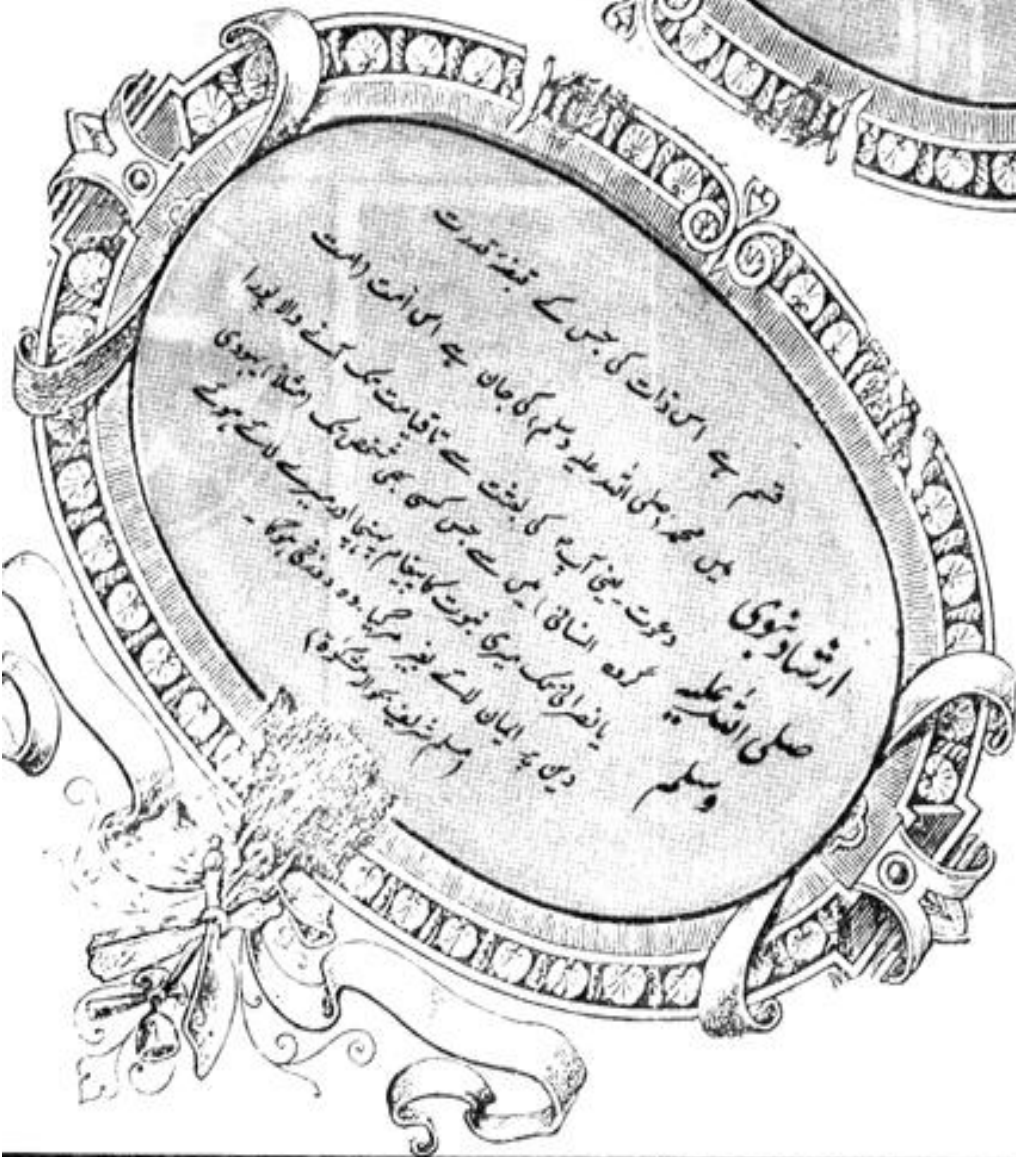 ارشاد نبوی
صلی اللہ علیہ
وسلم
قسم ہے اس ذات کی جس کے قبضۂ قدرت
میں محمد (صلی اللہ علیہ وسلم) کی جان ہے اس امت (امت
دعوت ۔ یعنی آپؐ کی بعثت سے تا قیامت تک آنے والا پورا
گروہ انسانی) میں سے جس کسی بھی شخص تک (مثلاً) یہودی
یا نصرانی تک میری نبوت کا پیغام پہنچا اور میرے لائے ہوئے
دین پر ایمان لائے بغیر مر گیا ۔ وہ دوزخی ہوگا ۔
(مسلم شریف بحوالہ مشکوٰۃ)